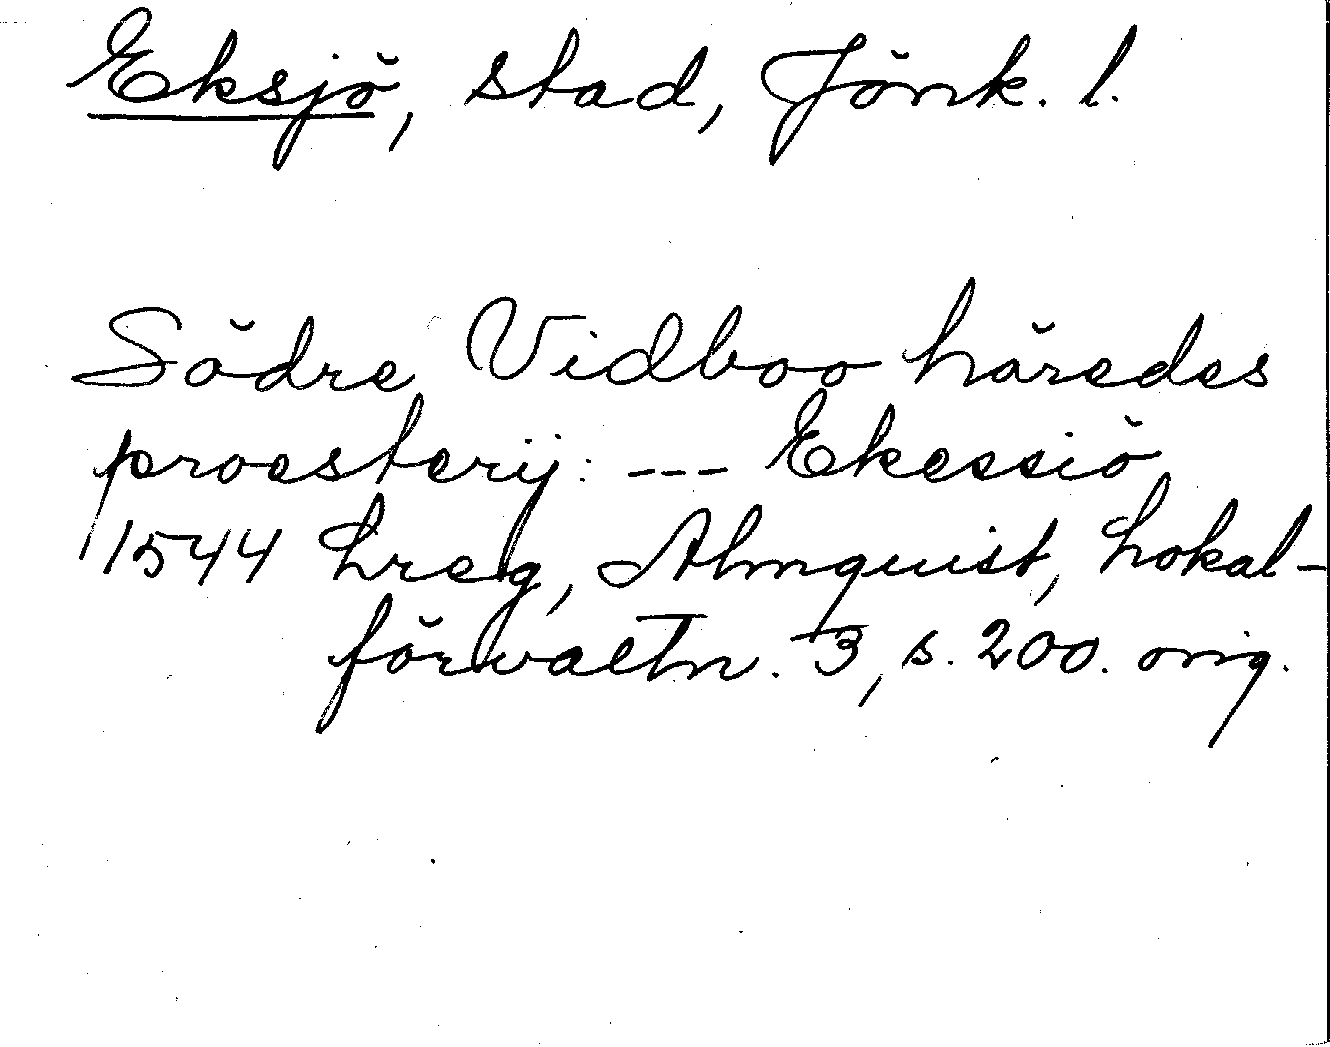 Eksjö, stad, Jönk. l.
Södre Vidboo häredes
proesterij: --- Ekessiö
1544 Lreg, Almquist, Lokal-
förvaltn. 3, s. 200. orig.